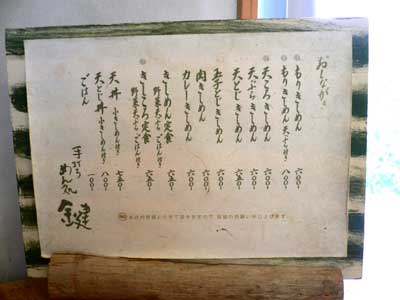 おしながき
もりきしめん 六〇〇
もりきしめん 天ぷら付き 八〇〇
天ころきしめん 六〇〇
天ぷらきしめん 六〇〇
天とじきしめん 六五〇
玉子とじきしめん 六〇〇
肉きしめん 六〇〇
カレーきしめん 六〇〇
きしめん定食 野菜天ぷら ごはん付き 六五〇
きしころ定食 野菜天ぷら ごはん付き 六五〇
天丼 小きしめん付き 七五〇
天とじ丼 小きしめん付き 八〇〇
ごはん 一〇〇
手打ち
めん処
鍵